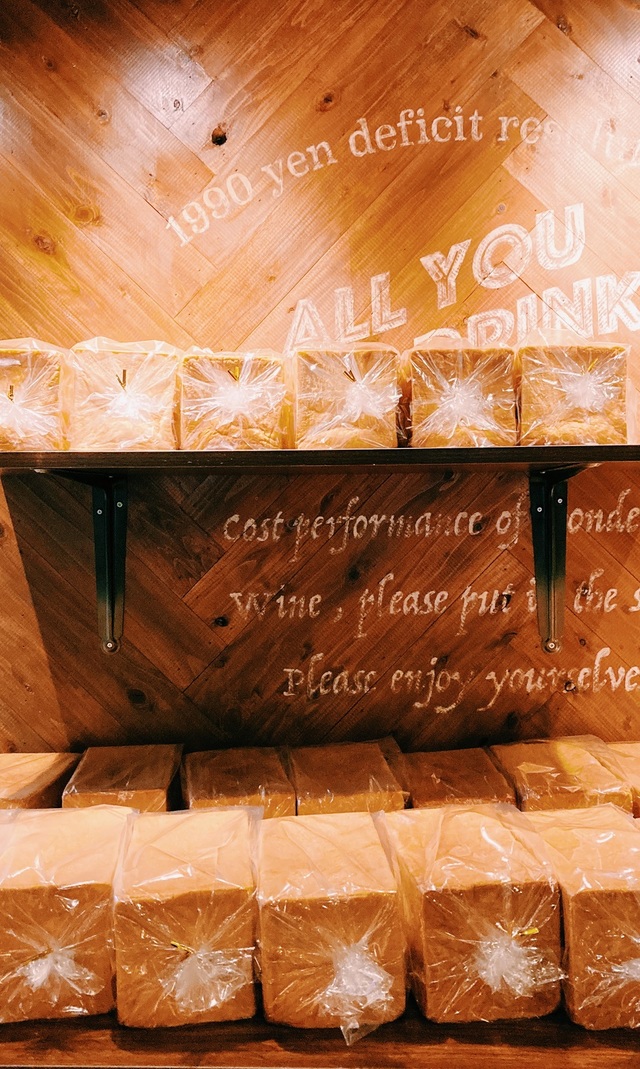 1990 yen deficit
ALL YOU
DRINK
Cost performance of
Wine, please put the
Please enjoy